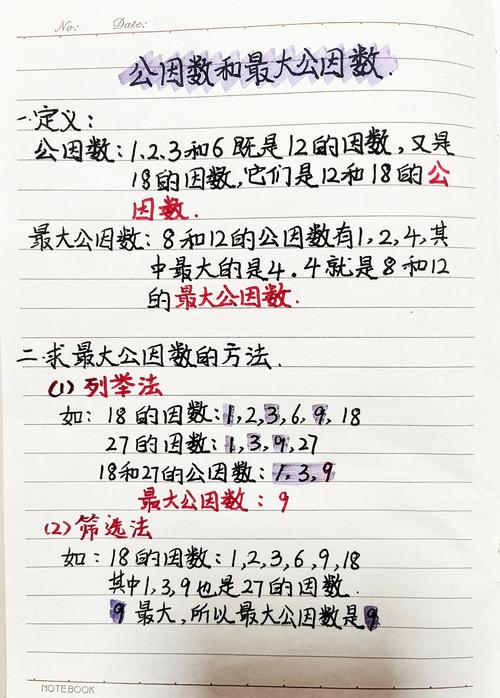 No: Date:
公因数和最大公因数.
一.定义:
公因数:1.2.3和6既是12的因数,又是
18的因数,它们是12和18的公
因数.
最大公因数:8和12的公因数有1,2,4,其
中最大的是4.4就是8和12
的最大公因数.
二.求最大公因数的方法.
(1)列举法
如:18的因数:1,2,3,6,9,18
27的因数:1,3,9,27
18和27的公因数:1.3.9
最大公因数:9
(2)筛选法
如:18的因数:1,2,3,6,9,18
其中1,3,9也是27的因数.
9最大,所以最大公因数是9
NOTEBOOK